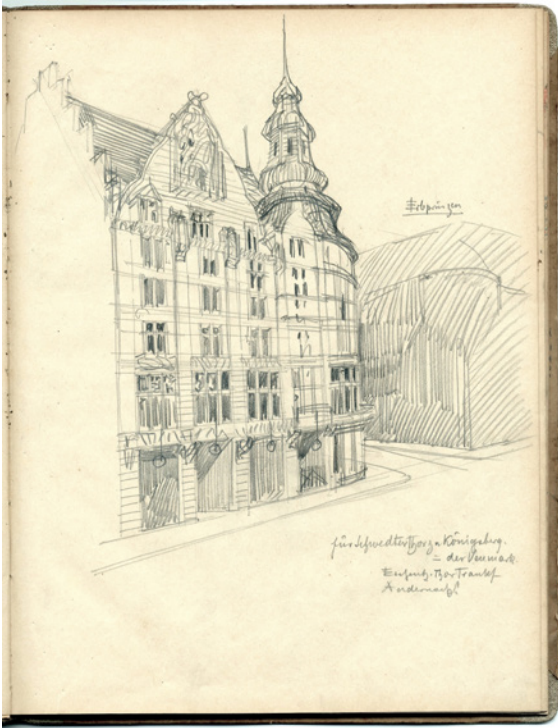 Erbprinzen
für Schwedter Thor z. Königsberg.
= der Neumark.
Eschenh. Thor Frankf
Andernach